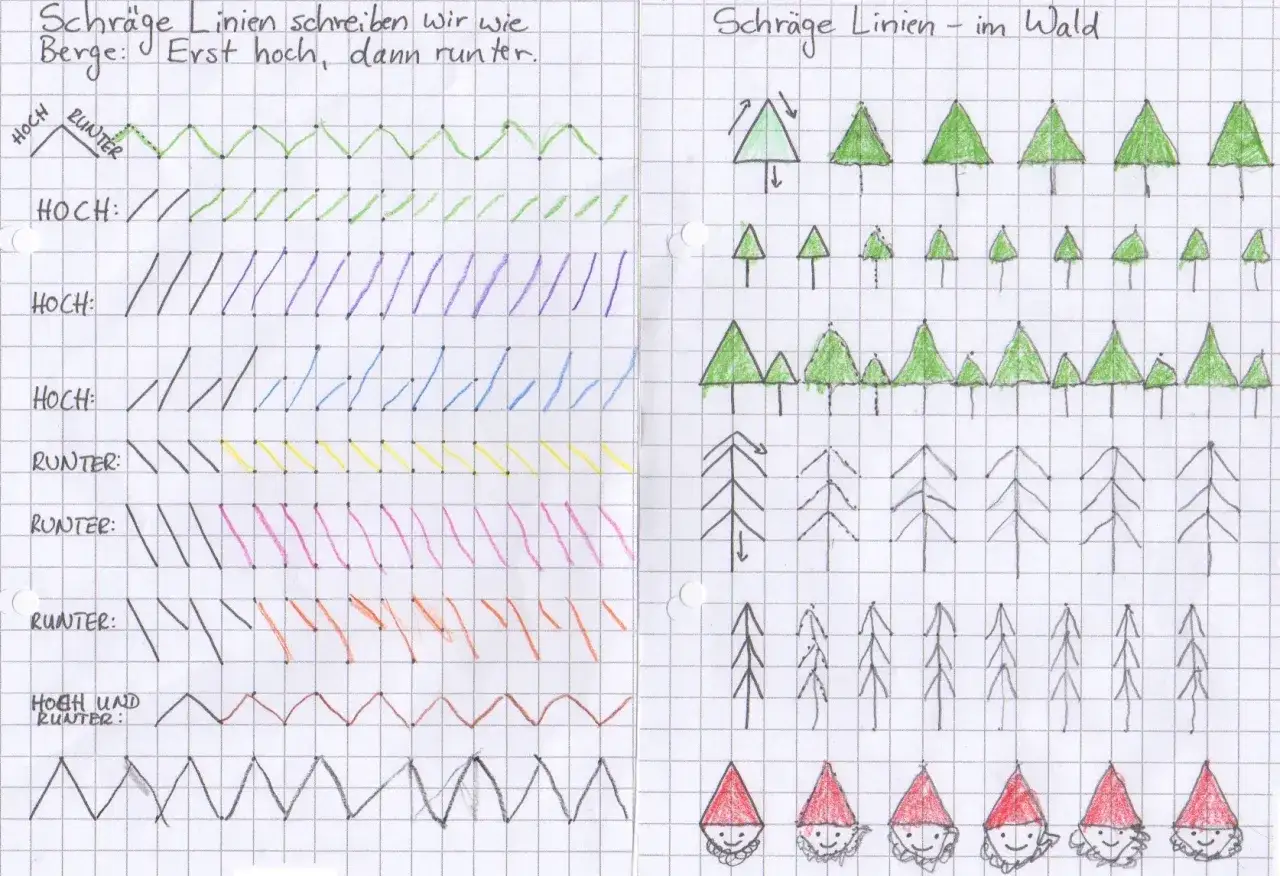 Schräge Linien schreiben wir wie
Berge: Erst hoch, dann runter.
HOCH
RUNTER
HOCH:
HOCH:
HOCH:
RUNTER:
RUNTER:
RUNTER:
HOCH UND
RUNTER:
Schräge Linien – im Wald